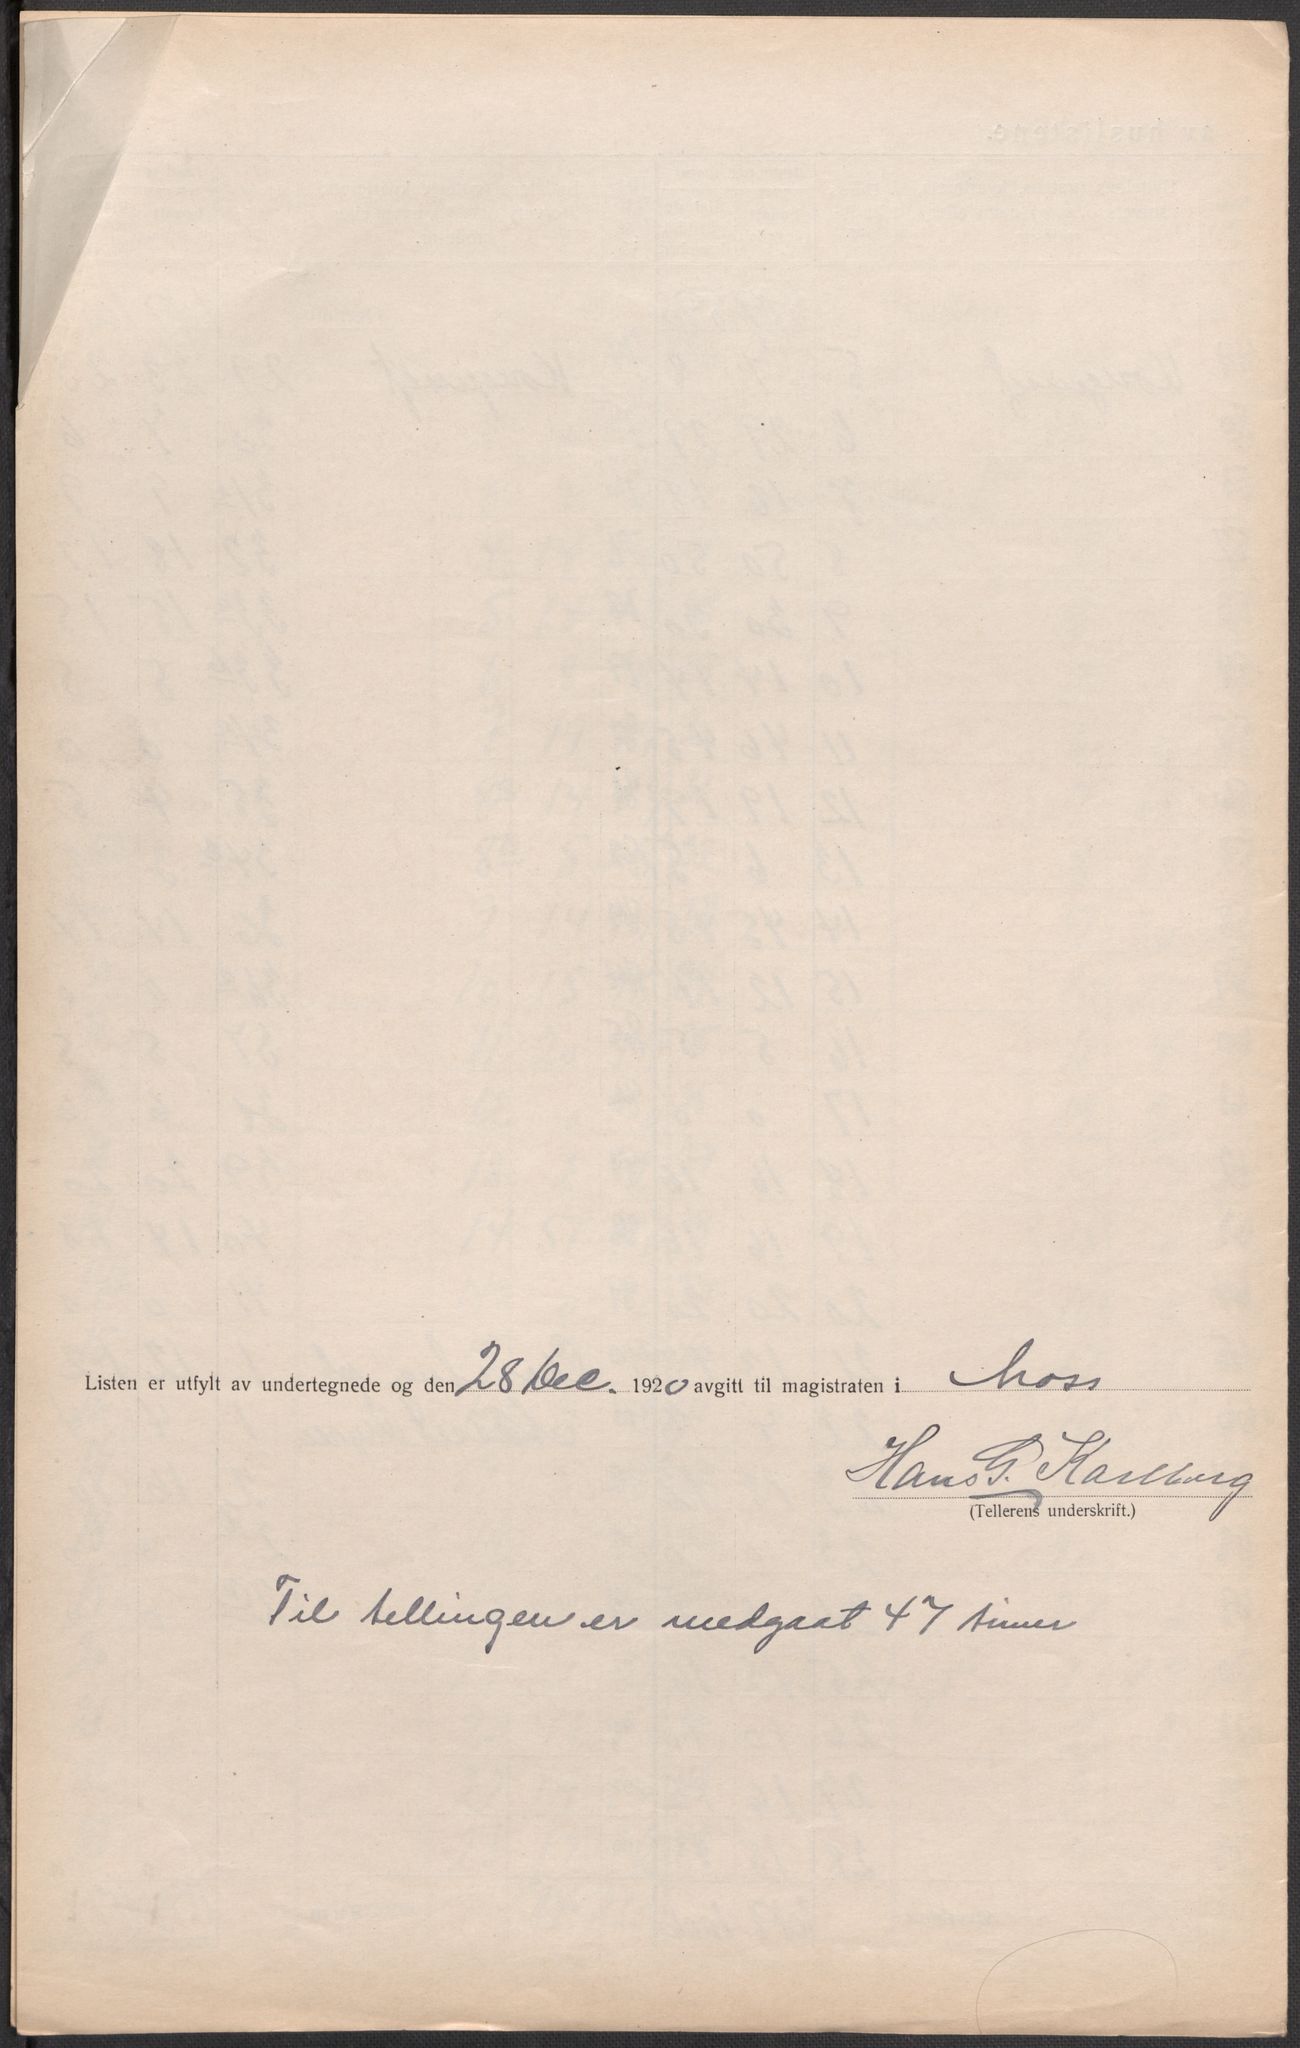 Listen er utfylt av undertegnede og den 28 Dec. 1920 avgitt til magistraten i Moss
Hans G. Karlberg
(Tellerens underskrift.)
Til tellingen er medgaat 47 timer